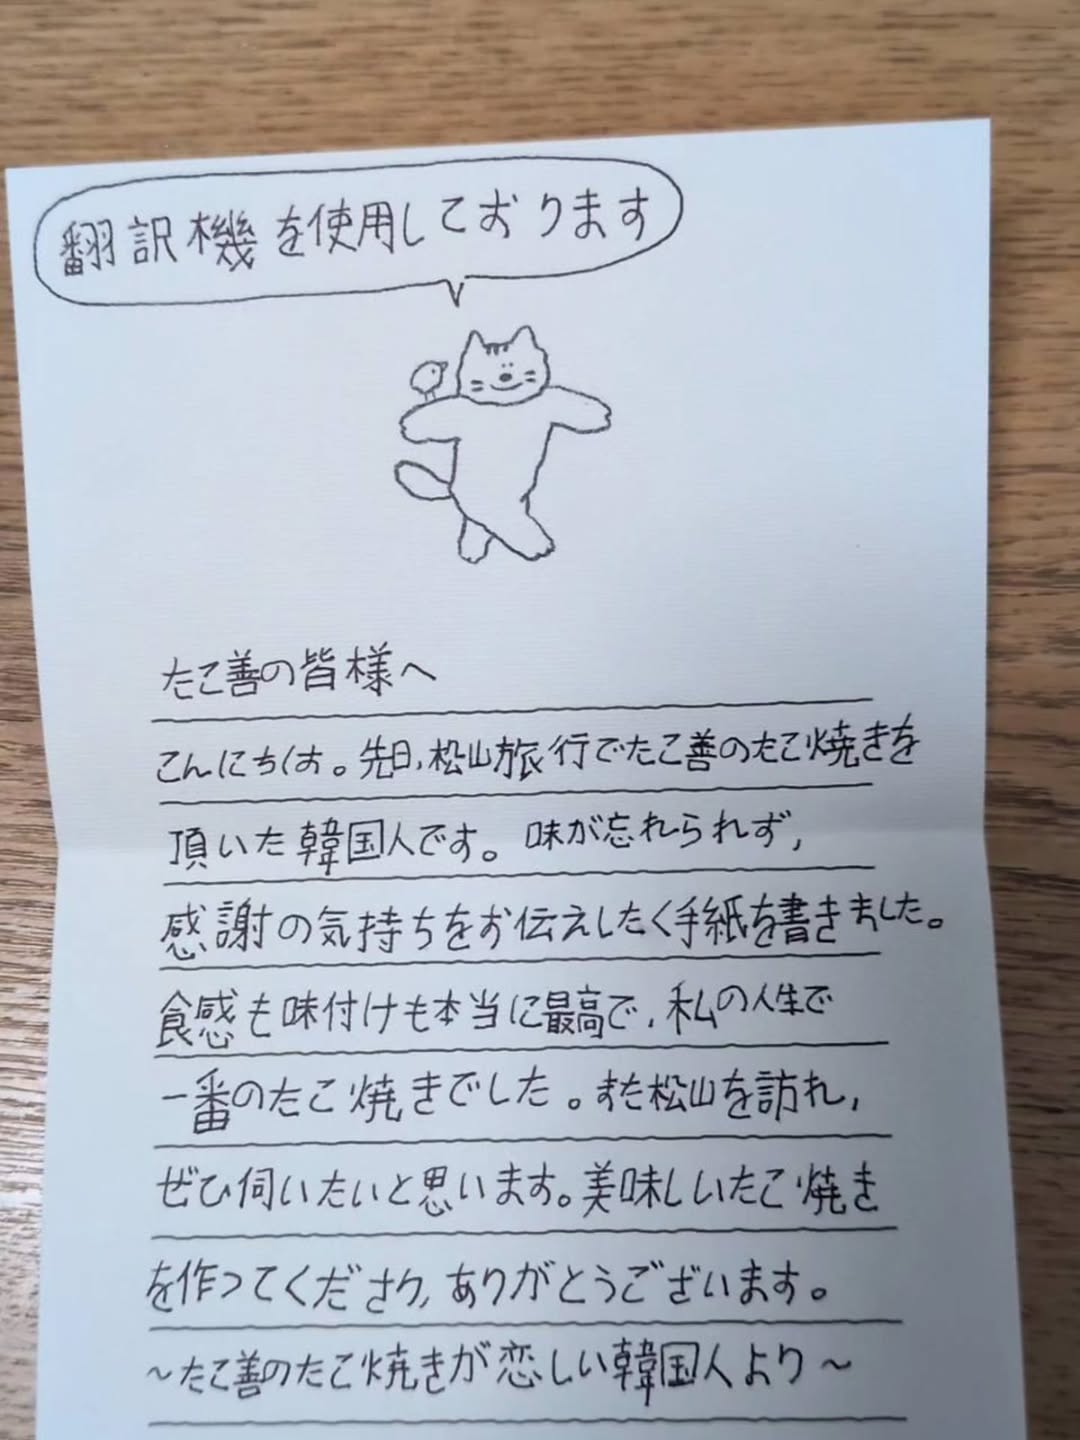 翻訳機を使用しております
たこ善の皆様へ
こんにちは。先日、松山旅行でたこ善のたこ焼きを
頂いた韓国人です。味が忘れられず、
感謝の気持ちをお伝えしたく手紙を書きました。
食感も味付けも本当に最高で、私の人生で
一番のたこ焼きでした。また松山を訪れ、
ぜひ伺いたいと思います。美味しいたこ焼き
を作ってくださり、ありがとうございます。
～たこ善のたこ焼きが恋しい韓国人より～